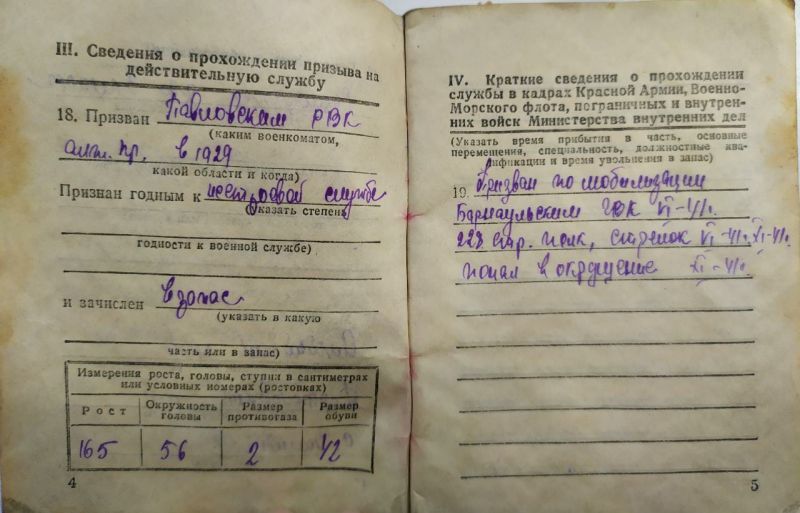 III. Сведения о прохождении призыва на
действительную службу
18. Призван Павловским РВК
(каким военкоматом,
алт. кр. в 1929
какой области и когда)
Признан годным к нестроевой службе
(указать степень
годности к военной службе)
и зачислен в запас
(указать в какую
часть или в запас)
Измерения роста, головы, ступни в сантиметрах
или условных номерах (ростовках)
Рост Окружность головы Размер противогаза Размер обуви
165 56 2 42
4
IV. Краткие сведения о прохождении
службы в кадрах Красной Армии, Военно-
Морского флота, пограничных и внутрен-
них войск Министерства внутренних дел
(Указать время прибытия в часть, основные
перемещения, специальность, должностные ква-
лификации и время увольнения в запас)
19. Призван по мобилизации
Барнаульским ГВК VI-41г.
стр. полк, стрелок VI-41г. XI-41г.
попал в окружение XI-41г.
5